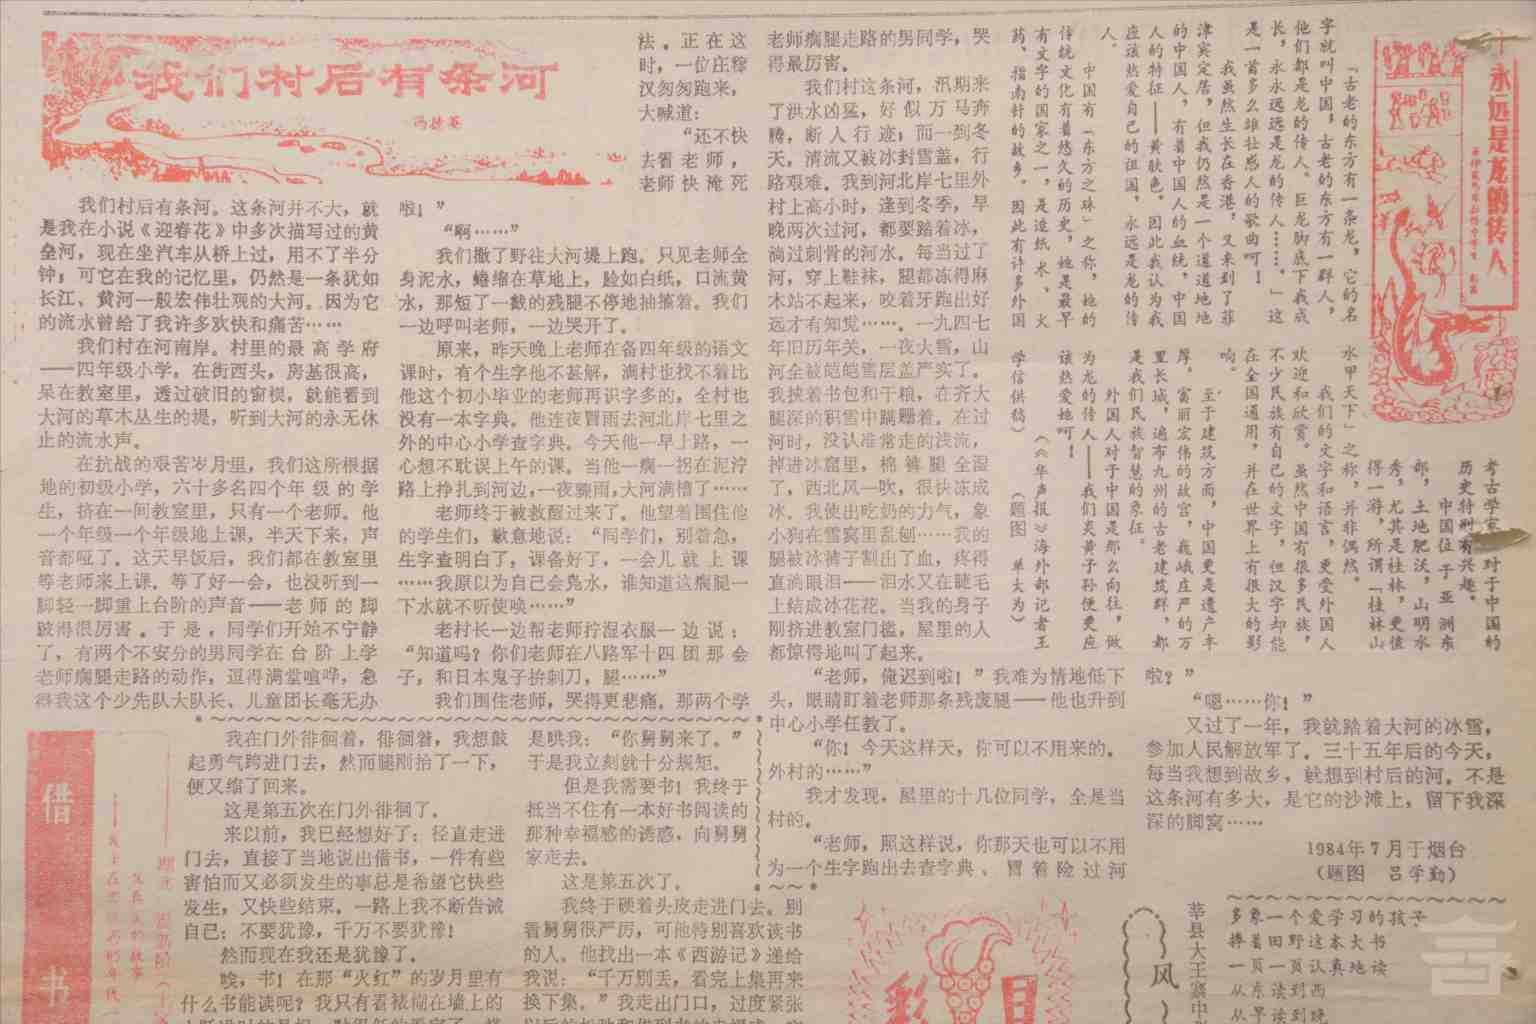 我们村后有条河
冯德英
我们村后有条河。这条河并不大，就
是我在小说《迎春花》中多次描写过的黄
垒河，现在坐汽车从桥上过，用不了半分
钟；可它在我的记忆里，仍然是一条犹如
长江、黄河一般宏伟壮观的大河。因为它
的流水曾给了我许多欢快和痛苦……
我们村在河南岸。村里的最高学府
——四年级小学。在街西头，房基很高，
呆在教室里，透过破旧的窗棂，就能看到
大河的草木丛生的堤，听到大河的永无休
止的流水声。
在抗战的艰苦岁月里，我们这所根据
地的初级小学，六十多名四个年级的学
生，挤在一间教室里，只有一个老师。他
一个年级一个年级地上课，半天下来，声
音都哑了。这天早饭后，我们都在教室里
等老师来上课。等了好一会，也没听到一
脚轻一脚重上台阶的声音——老师的脚
跛得很厉害。于是，同学们开始不宁静
了，有两个不安分的男同学在台阶上学
老师瘸腿走路的动作，逗得满堂喧哗，急
得我这个少先队大队长、儿童团长毫无办
法。正在这
时，一位庄稼
汉匆匆跑来，
大喊道：
“还不快
去看老师，
老师快淹死
啦！”
“啊……”
我们撒了野往大河堤上跑。只见老师全
身泥水，蜷缩在草地上，脸如白纸，口流黄
水，那短了一截的残腿不停地抽搐着。我们
一边呼叫老师，一边哭开了。
原来，昨天晚上老师在备四年级的语文
课时，有个生字他不甚解，满村也找不着比
他这个初小毕业的老师再识字多的，全村也
没有一本字典。他连夜冒雨去河北岸七里之
外的中心小学查字典。今天他一早上路，一
心想不耽误上午的课。当他一瘸一拐在泥泞
路上挣扎到河边，一夜骤雨，大河满槽了……
老师终于被救醒过来了。他望着围住他
的学生们，歉意地说：“同学们，别着急，
生字查明白了，课备好了，一会儿就上课
……我原以为自己会凫水，谁知道这瘸腿一
下水就不听使唤……”
老村长一边帮老师拧湿衣服一边说：
“知道吗？你们老师在八路军十四团那会
子，和日本鬼子拚刺刀，腿……”
我们围住老师，哭得更悲痛。那两个学
老师瘸腿走路的男同学，哭
得最厉害。
我们村这条河，汛期来
了洪水凶猛，好似万马奔
腾，断人行迹；而一到冬
天，清流又被冰封雪盖，行
路艰难。我到河北岸七里外
村上高小时，逢到冬季，早
晚两次过河，都要踏着冰，
淌过刺骨的河水。每当过了
河，穿上鞋袜，腿都冻得麻
木站不起来，咬着牙跑出好
远才有知觉……。一九四七
年旧历年关，一夜大雪，山
河全被皑皑雪层盖严实了。
我挟着书包和干粮，在齐大
腿深的积雪中蹒跚着。在过
河时，没认准常走的浅流，
掉进冰窟里，棉裤腿全湿
了，西北风一吹，很快冻成
冰。我使出吃奶的力气，象
小狗在雪窝里乱刨……我的
腿被冰裤子割出了血，疼得
直淌眼泪——泪水又在睫毛
上结成冰花花。当我的身子
刚挤进教室门槛，屋里的人
都惊愕地叫了起来。
“老师，俺迟到啦！”我难为情地低下
头，眼睛盯着老师那条残废腿——他也升到
中心小学任教了。
“你！今天这样天，你可以不用来的。
外村的……”
我才发现，屋里的十几位同学，全是当
村的。
“老师，照这样说，你那天也可以不用
为一个生字跑出去查字典、冒着险过河
啦？”
“嗯……你！”
又过了一年，我就踏着大河的冰雪，
参加人民解放军了。三十五年后的今天，
每当我想到故乡，就想到村后的河。不是
这条河有多大，是它的沙滩上，留下我深
深的脚窝……
1984年7月于烟台
（题图 吕学勤）
永远是龙的传人
「古老的东方有一条龙，它的名
字就叫中国，古老的东方有一群人，
他们都是龙的传人。巨龙脚底下我成
长，永永远远是龙的传人……。」这
是一首多么雄壮感人的歌曲呵！
我虽然生长在香港，又来到了菲
津宾定居，但我仍然是一个道道地地
的中国人，有着中国人的血统，中国
人的特征——黄肤色。因此我认为我
应该热爱自己的祖国，永远是龙的传
人。
中国有「东方之珠」之称，她的
传统文化有着悠久的历史，她是最早
有文字的国家之一，是造纸术、火
药、指南针的故乡。因此有许多外国
考古学家对于中国的
历史特别有兴趣。
中国位于亚洲东
部，土地肥沃，山明水
秀，尤其是桂林，更值
得一游，所谓「桂林山
水甲天下」之称，并非偶然。
我们的文字和语言，更受外国人
欢迎和欣赏。虽然中国有很多民族，
不少民族有自己的文字，但汉字却能
在全国通用，并在世界上有很大的影
响。
至于建筑方面，中国更是遗产丰
厚。富丽宏伟的故宫，巍峨庄严的万
里长城，遍布九州的古老建筑群，都
是我们民族智慧的象征。
外国人对于中国是那么向往，做
为龙的传人——我们炎黄子孙便更应
该热爱她呵！
（《华声报》海外部记者王
学信供稿）
（题图 单大为）
借书
我在门外徘徊着，徘徊着，我想鼓
起勇气跨进门去，然而腿刚抬了一下，
便又缩了回来。
这是第五次在门外徘徊了。
来以前，我已经想好了：径直走进
门去，直接了当地说出借书，一件有些
害怕而又必须发生的事总是希望它快些
发生，又快些结束。一路上我不断告诫
自己：不要犹豫，千万不要犹豫！
然而现在我还是犹豫了。
唉，书！在那“火红”的岁月里有
什么书能读呢？我只有看裱糊在墙上的
是哄我：“你舅舅来了。”
于是我立刻就十分规矩。
但是我需要书！我终于
抵当不住有一本好书阅读的
那种幸福感的诱惑，向舅舅
家走去。
这是第五次了。
我终于硬着头皮走进门去。别
看舅舅很严厉，可他特别喜欢读书
的人。他找出一本《西游记》递给
我说：“千万别丢，看完上集再来
换下集。”我走出门口，过度紧张
风
莘县大王寨中
多象一个爱学习的孩子
捧着田野这本大书
一页一页认真地读
从东读到西
从早读到晚